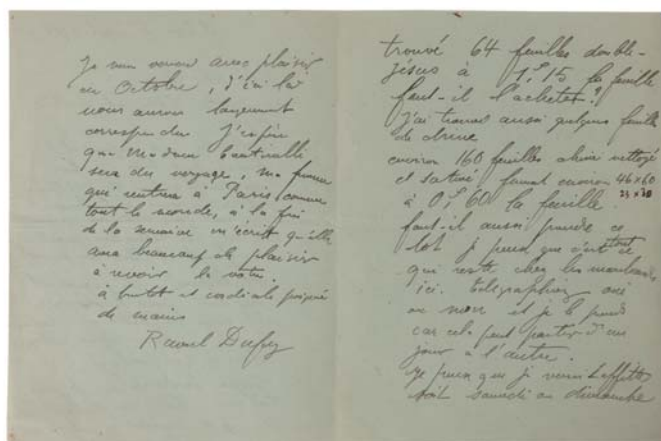 Je vous verrai avec plaisir
en Octobre, d'ici là
nous aurons largement
correspondu J'espère
que Madame
sera du voyage, ma femme
qui rentrera à Paris comme
tout le monde, à la fin
de la semaine m'écrit qu'elle
aura beaucoup de plaisir
à revoir la votre.
à bientot et cordiale poignée
de mains
Raoul Dufy
trouvé 64 feuilles double-
jésus à 1f,15 la feuille
faut-il l'acheter?
J'ai trouvé aussi quelques feuilles
de chine
environ 160 feuilles chine nettoyé
et satiné format environ 46x60
23 x 30
à 0f,60 la feuille.
faut-il aussi prendre ce
lot je pense que c'est tout ce
qui reste chez les marchands
ici. telegraphiez oui
ou non et je le prends
car cela peut partir d'un
jour à l'autre.
Je pense que je verrai Laffitte
soit samedi ou dimanche